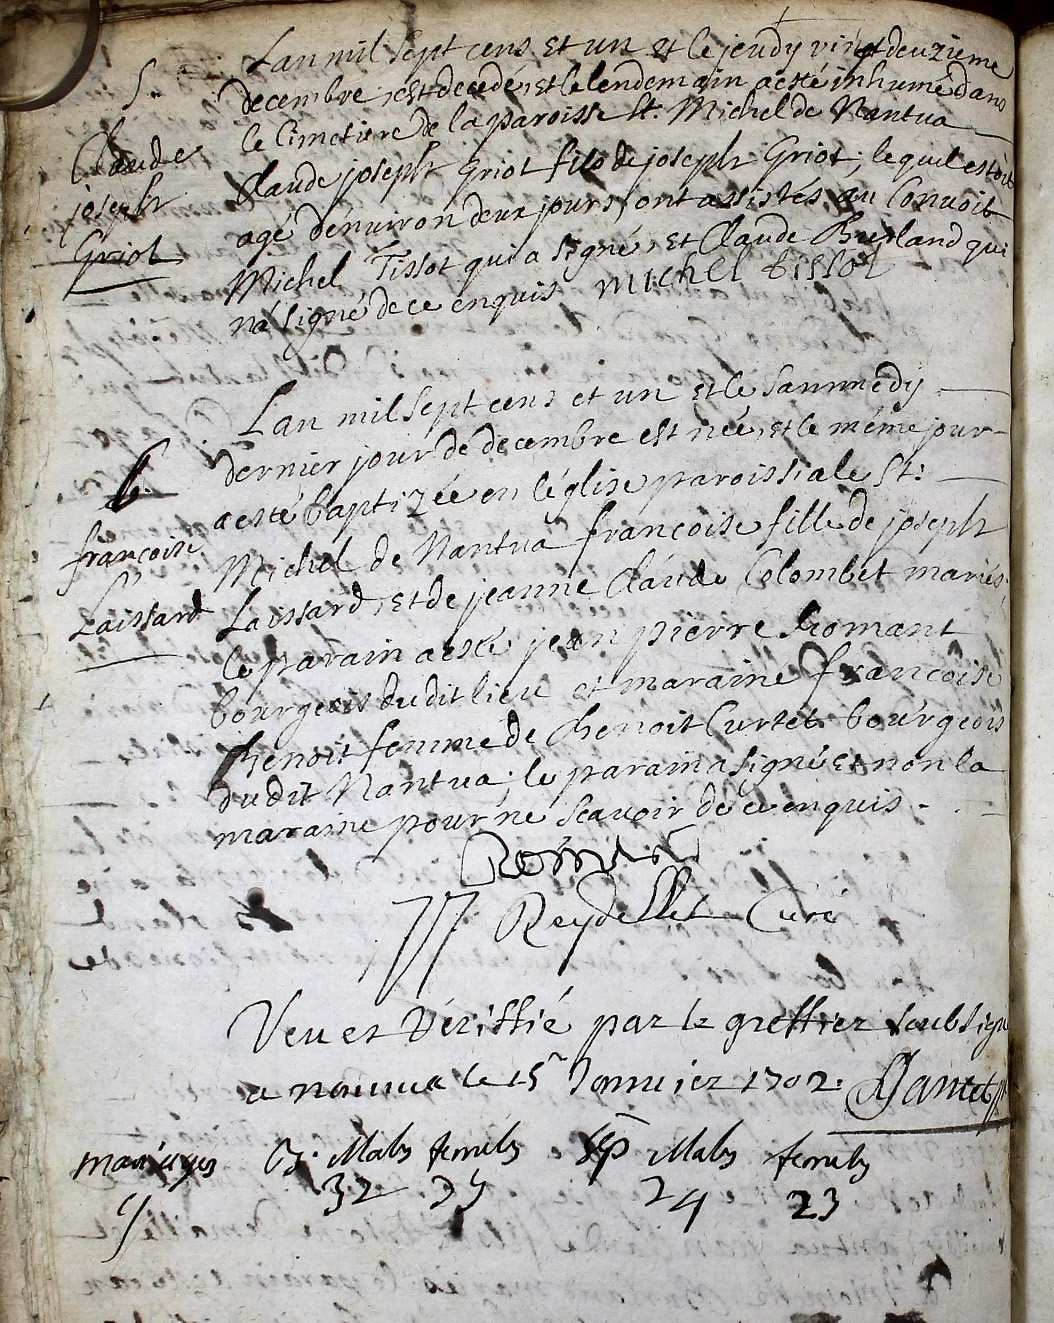 Lan mil sept cens et un et le jeudy vingt deuzieme
decembre, est decedé, et le lendemain a esté inhumé dans
le Cimetiere de la paroisse St. Michel de Nantua
Claude joseph Griot fils de joseph Griot, lequel estoit
agé denuiron deux jours, ont assistés au Conuoit
Michel Tissot qui a signé, et Claude qui
na signé de ce enquis Michel tissot
S.
Claude
joseph
Griot
Lan mil sept cens et un et le sammedy
dernier jour de decembre est née, et le méme jour
a esté baptizée en léglise paroissiale St.
Michel de Nantua francoise fille de joseph
Laissard, et de jeanne Claude Colombet mariés,
le parain a esté jean pierre Romant
bourgeois dudit lieu et maraine francoise
Benoit femme de Benoit Curtet bourgeois
dudit Nantua, le parain a signé et non la
maraine pour ne scauoir de ce enquis.
b.
francoise
Laissard
Romant
Reydellet Curé
Veu et Vériffié par le greffier soubsigné
a nantua le 15 Januier 1702.
mariages B. Males femeles Sep Males femeles
9 32 29 24 23